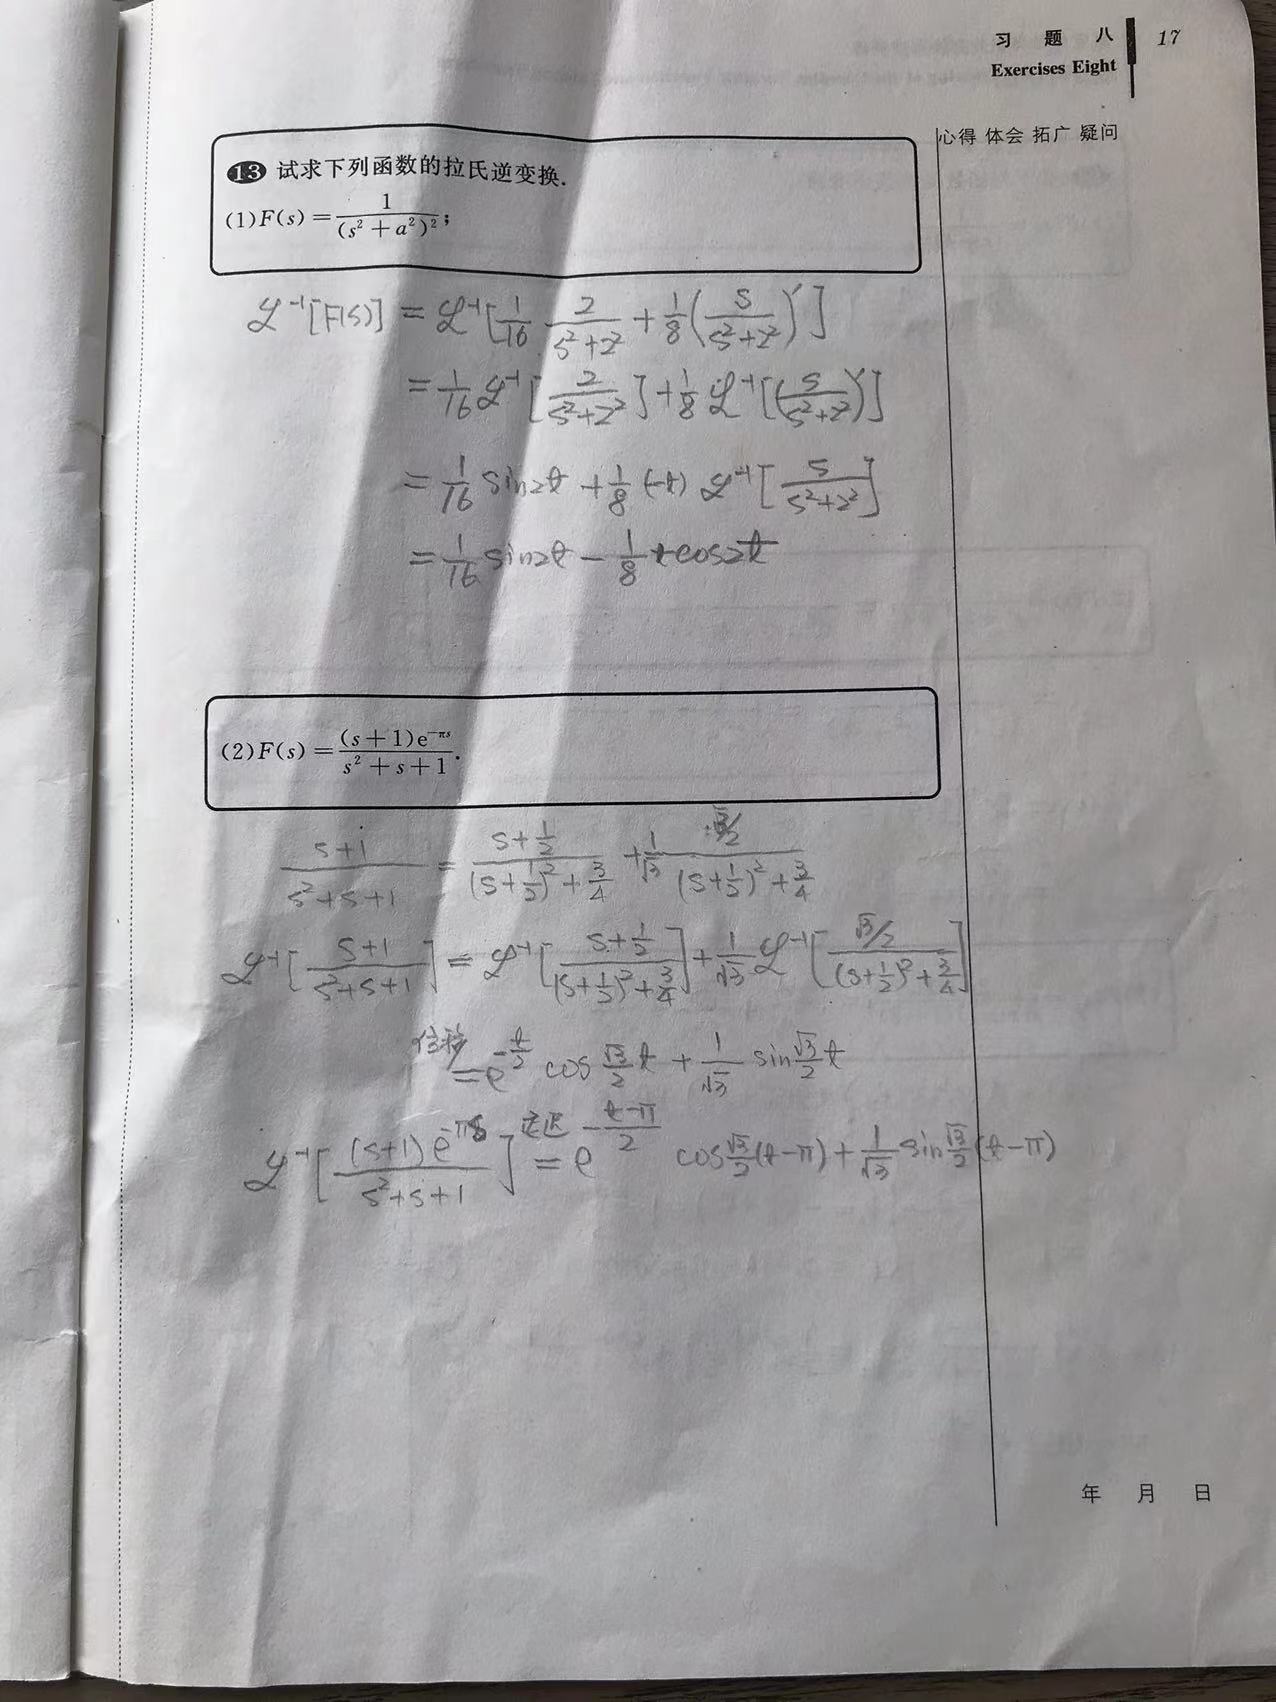 习 题 八 17
Exercises Eight
心得 体会 拓广 疑问
13 试求下列函数的拉氏逆变换.
(1) F(s) = 1/(s² + a²)²;
ℒ⁻¹[F(s)] = ℒ⁻¹[1/16 2/(s²+2²) + 1/8 (s/(s²+2²))′]
= 1/16 ℒ⁻¹[2/(s²+2²)] + 1/8 ℒ⁻¹[(s/(s²+2²))′]
= 1/16 sin2t + 1/8 (-t) ℒ⁻¹[s/(s²+2²)]
= 1/16 sin2t - 1/8 t cos2t
(2) F(s) = (s+1)e^(-πs)/(s² + s + 1).
(s+1)/(s²+s+1) = (s+1/2)/((s+1/2)²+3/4) + 1/√3 (√3/2)/((s+1/2)²+3/4)
ℒ⁻¹[(s+1)/(s²+s+1)] = ℒ⁻¹[(s+1/2)/((s+1/2)²+3/4)] + 1/√3 ℒ⁻¹[(√3/2)/((s+1/2)²+3/4)]
位移 = e^(-t/2) cos √3/2 t + 1/√3 sin √3/2 t
ℒ⁻¹[(s+1)e^(-πs)/(s²+s+1)] 延迟 = e^(-(t-π)/2) cos √3/2 (t-π) + 1/√3 sin √3/2 (t-π)
年 月 日